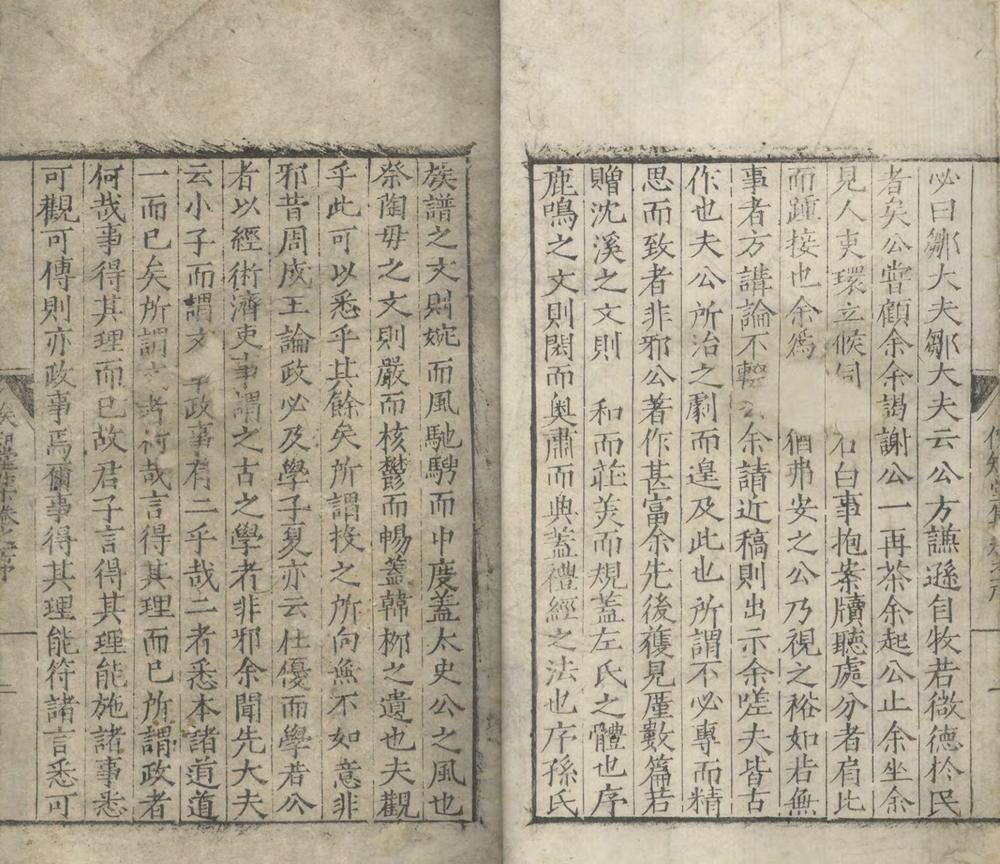 必曰鄒大夫鄒大夫云公方謙遜自牧若微德於民
者矣公嘗顧余余謁謝公一再茶余起公止余坐余
見人吏環立候伺 右白事抱案牘聽處分者肩比
而踵接也余爲 猶弗安之公乃視之裕如若無
事者方講論不輟 余請近稿則出示余嗟夫皆古
作也夫公所治之劇而遑及此也所謂不必專而精
思而致者非邪公著作甚富余先後獲見厪數篇若
贈沈溪之文則 和而莊美而規蓋左氏之體也序
鹿鳴之文則閎而奥肅而典蓋禮經之法也序孫氏
族譜之文則婉而風馳騁而中度蓋太史公之風也
祭陶母之文則嚴而核鬱而暢蓋韓柳之遺也夫觀
乎此可以悉乎其餘矣所謂投之所向無不如意非
邪昔周成王論政必及學子夏亦云仕優而學若公
者以經術濟吏事謂之古之學者非邪余聞先大夫
云小子而謂文 政事有二乎哉二者悉本諸道道
一而已矣所謂 者何哉言得其理而已所謂政者
何哉事得其理而已故君子言得其理能施諸事悉
可觀可傳則亦政事焉爾事得其理能符諸言悉可